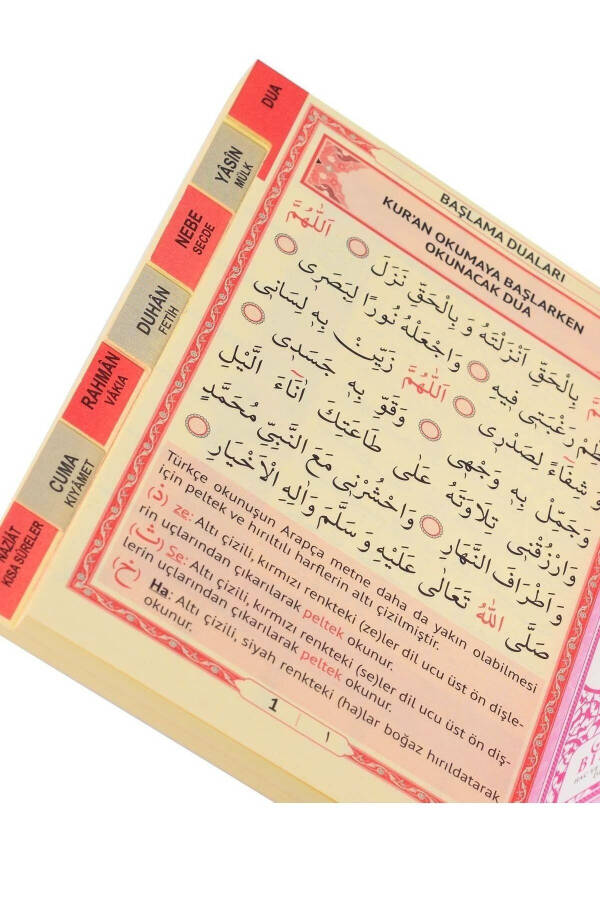 DUA
YÂSÎN
MÜLK
NEBE
SECDE
DUHÂN
FETİH
RAHMÂN
VÂKIA
CUMA
KIYÂMET
NAZİÂT
KISA SÛRELER
BAŞLAMA DUALARI
KUR'AN OKUMAYA BAŞLARKEN
OKUNACAK DUA
اَللّٰهُمَّ
بِالْحَقِّ اَنْزَلْتَهُ وَ بِالْحَقِّ نَزَلَ
رَغْبَتٖى فٖيهِ وَاجْعَلْهُ نُورًا لِبَصَرٖى
وَ شِفَٓاءً لِصَدْرٖى اَللّٰهُمَّ زَيِّنْ بِهٖ لِسَانٖى
وَجَمِّلْ بِهٖ وَجْهٖى وَقَوِّ بِهٖ جَسَدٖى
وَارْزُقْنٖى تِلَاوَتَهُ عَلٰى طَاعَتِكَ اٰنَٓاءَ الَّيْلِ
وَاَطْرَافَ النَّهَارِ وَاحْشُرْنٖى مَعَ النَّبِىِّ مُحَمَّدٍ
صَلَّى اللّٰهُ تَعَالٰى عَلَيْهِ وَسَلَّمَ وَاٰلِهِ الْاَخْيَارِ
Türkçe okunuşun Arapça metne daha da yakın olabilmesi
için peltek ve hırıltılı harflerin altı çizilmiştir.
(ذ) ze: Altı çizili, kırmızı renkteki (ze)ler dil ucu üst ön dişle-
rin uçlarından çıkarılarak peltek okunur.
(ث) Se: Altı çizili, kırmızı renkteki (se)ler dil ucu üst ön diş-
lerin uçlarından çıkarılarak peltek okunur.
(خ) Ha: Altı çizili, siyah renkteki (ha)lar boğaz hırıldatarak
okunur.
1 | ١